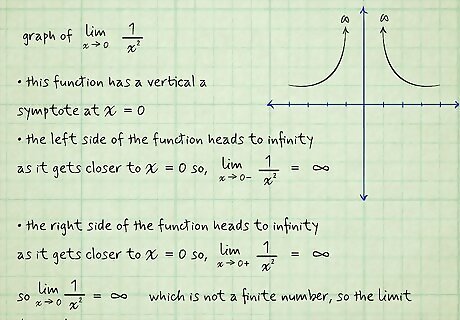 graph of lim x→0 1/x²
∞ ∞
• this function has a vertical a
symptote at x = 0
• the left side of the function heads to infinity
as it gets closer to x = 0 so, lim x→0- 1/x² = ∞
• the right side of the function heads to infinity
as it gets closer to x = 0 so, lim x→0+ 1/x² = ∞
so lim x→0 1/x² = ∞ which is not a finite number, so the limit